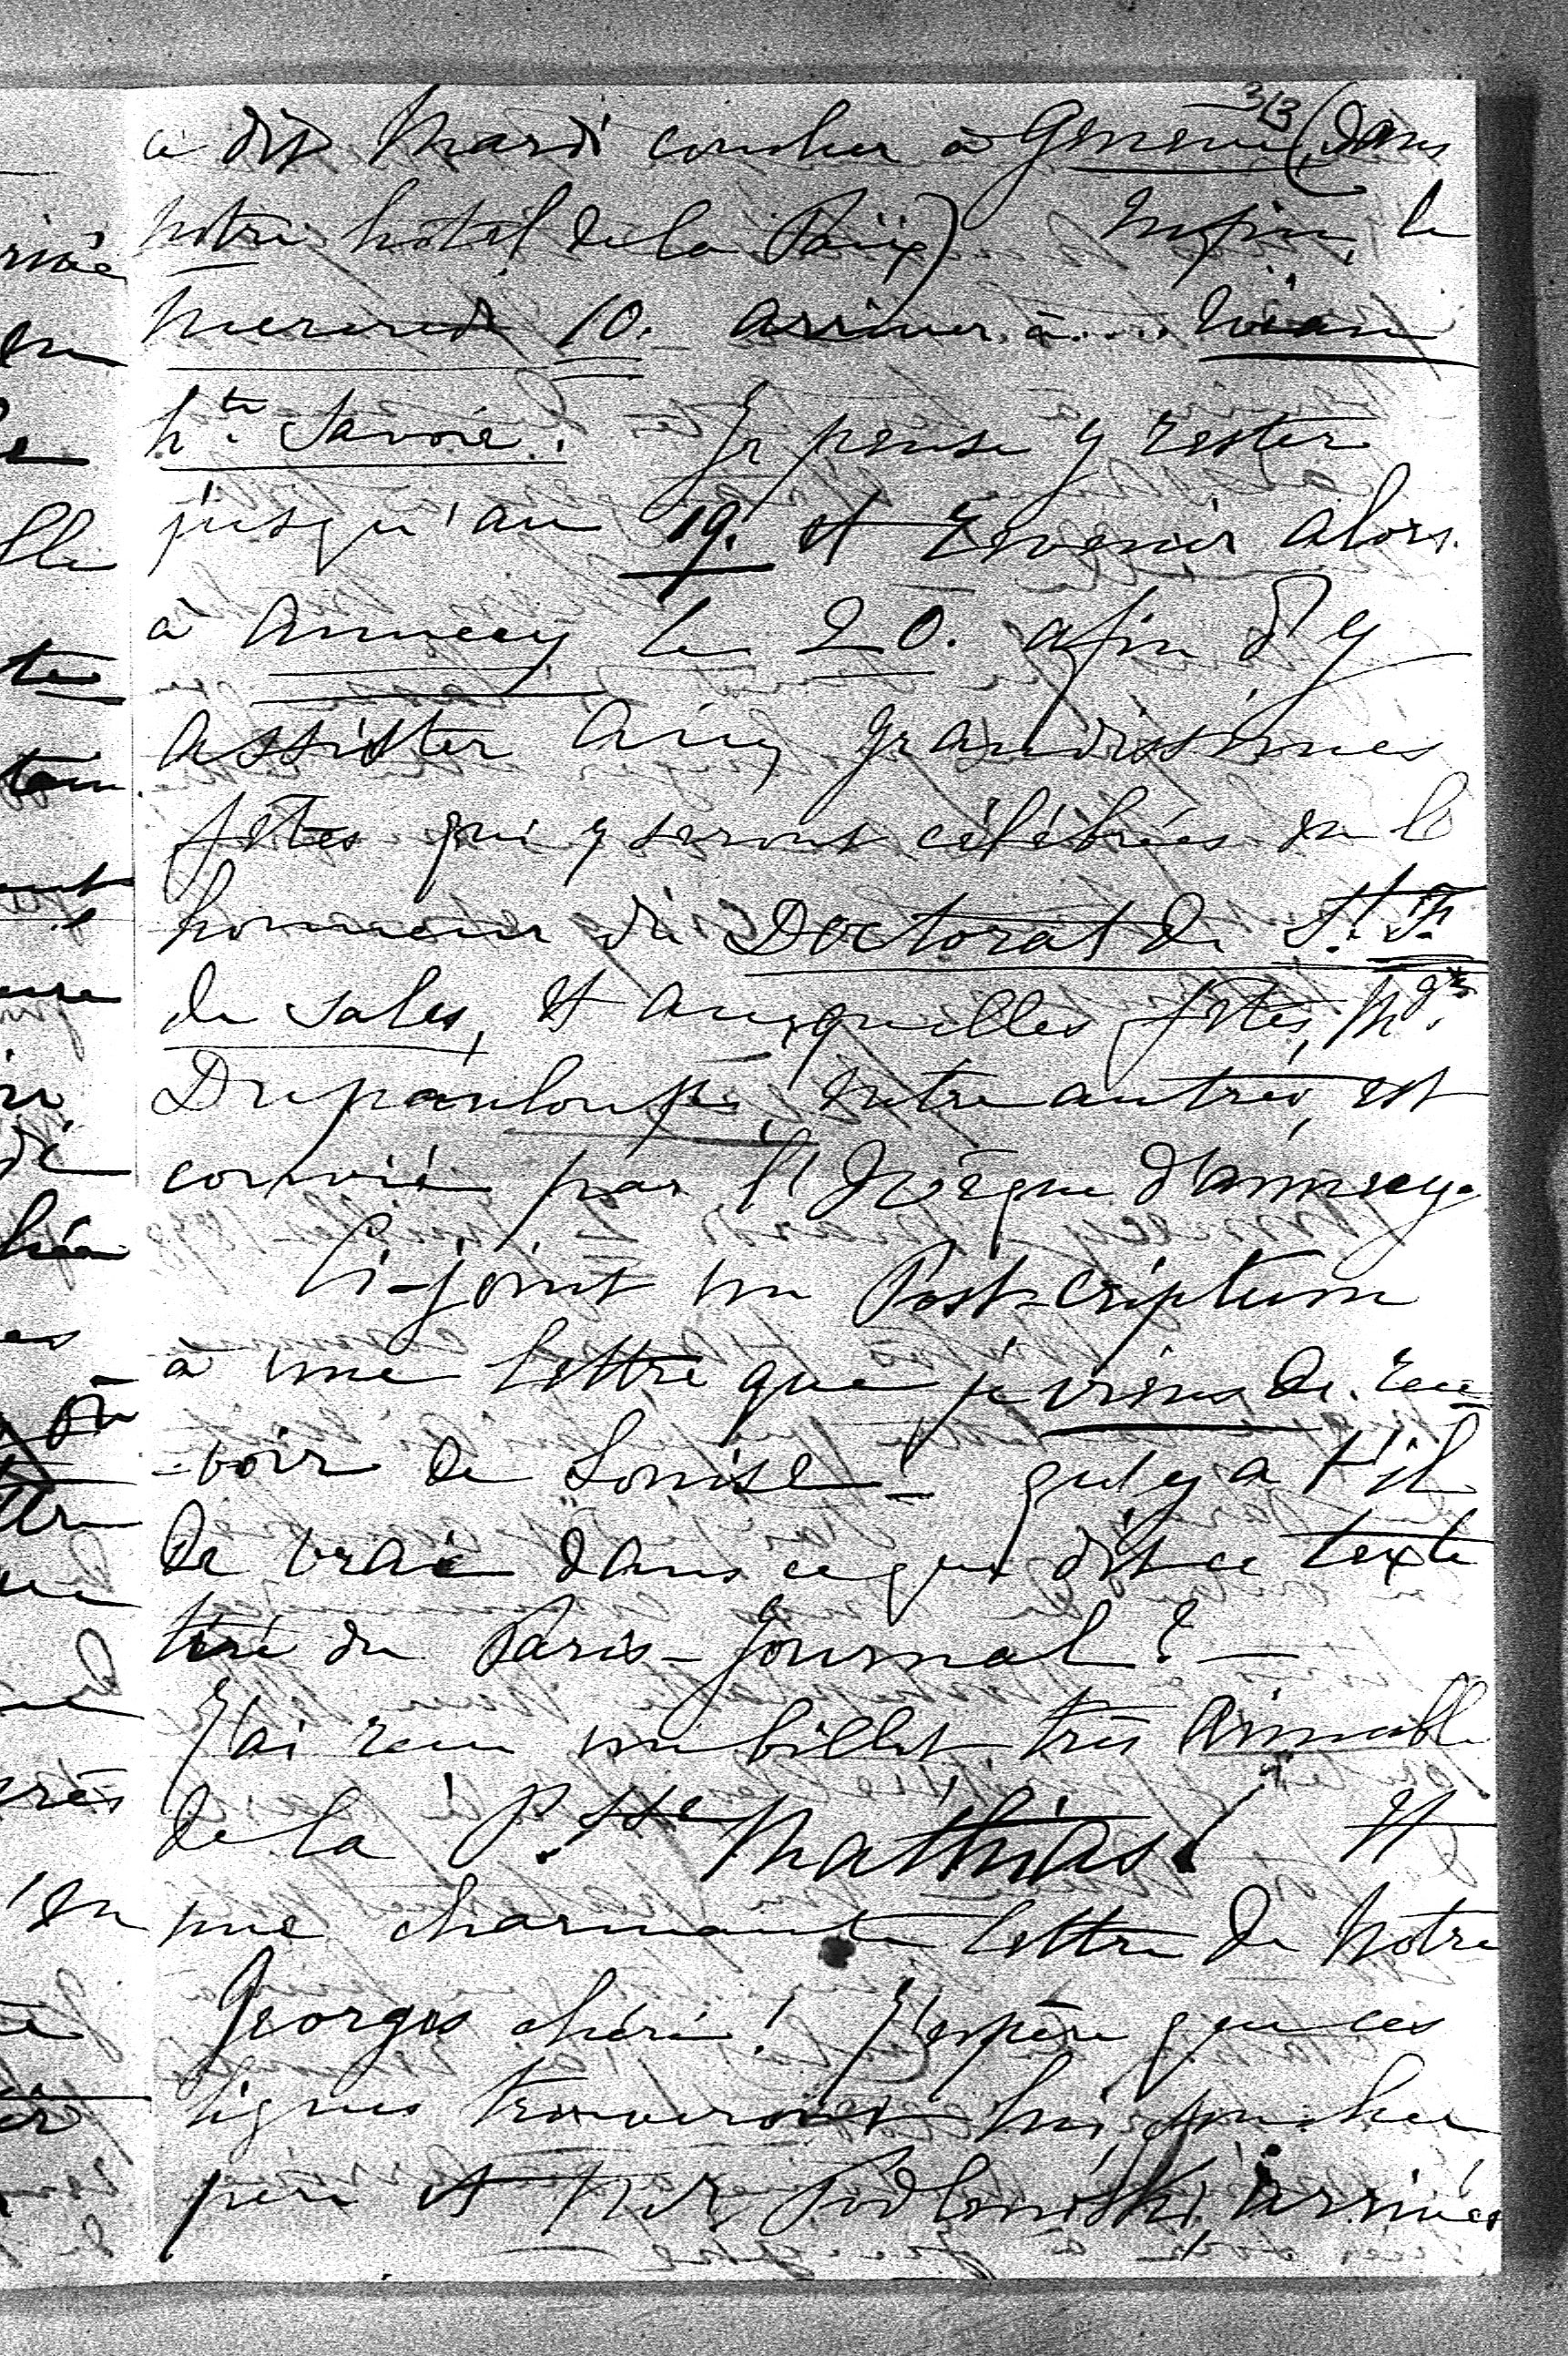 313
à dix Mardi coucher à Genève (dans
notre hôtel de la Paix) Enfin, le
Mercredi 10. arriver à.... Evian
hte Savoie. Je pense y rester
jusqu'au 19. et revenir alors
à Annecy le 20. afin d'y
assister aux grandissimes
fêtes qui y seront célébrées en l'
honneur du Doctorat de St. F.
de Sales, et auxquelles fêtes, Mgr
Dupanloup, entre autres, est
convié par l'Evêque d'Annecy.
Ci-joint un Post-criptum
à une lettre que je viens de rece
-voir de Louise - qu'y a t'il
de vrai dans ce que dit ce texte
tiré du Paris-Journal? -
J'ai reçu un billet très aimable
de la P.sse Mathias! et
une charmante lettre de notre
Georges chéri! J'espère que ces
lignes trouveront lui, son cher
père et Mr Podlewski, arrivés